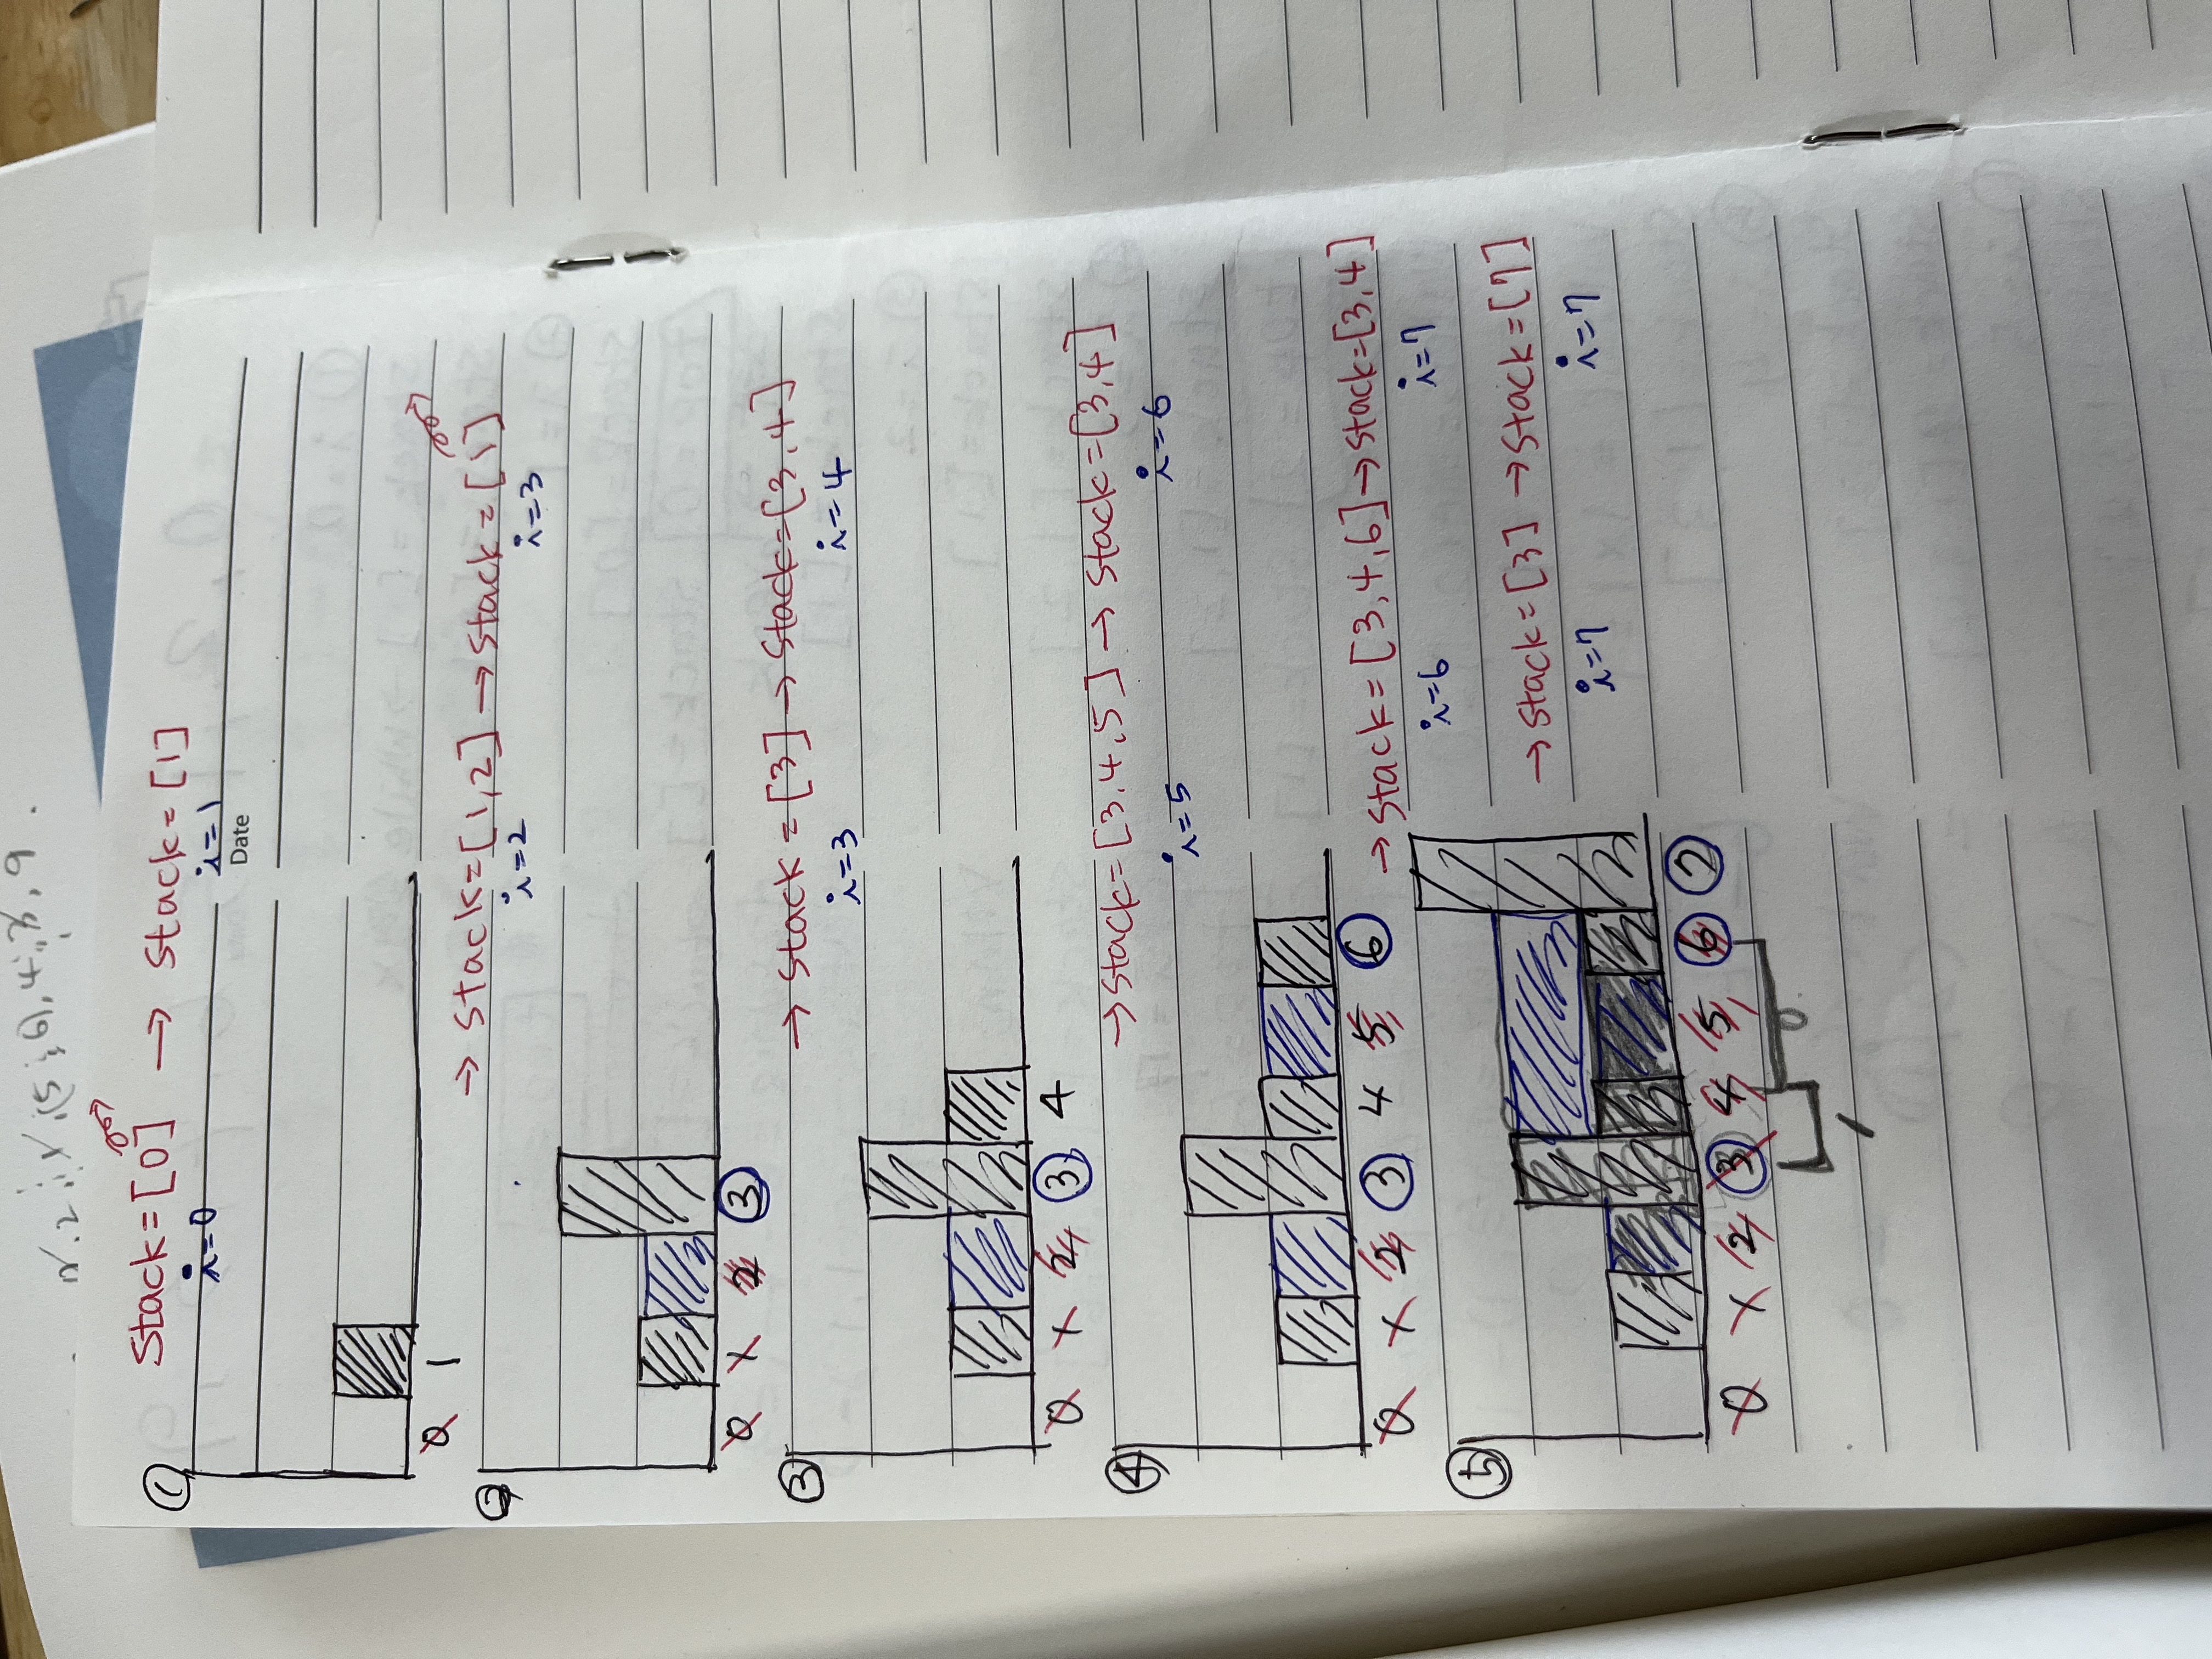 2, 1, (5, 6), 4, 3, 9.
① Stack=[0] → Stack=[1]
i=0 i=1
Date
0 1
② → Stack=[1,2] → Stack=[1]
i=2 i=3
0 1 2 ③
③ → Stack=[3] → Stack=[3,4]
i=3 i=4
0 1 2 ③ 4
④ → Stack=[3,4,5] → Stack=[3,4]
i=5 i=6
0 1 2 ③ 4 5 ⑥
→ Stack=[3,4,6] → Stack=[3,4]
i=6 i=7
⑤ → Stack=[3] → Stack=[7]
i=7 i=7
0 1 2 ③ 4 5 ⑥ ⑦
0.
1